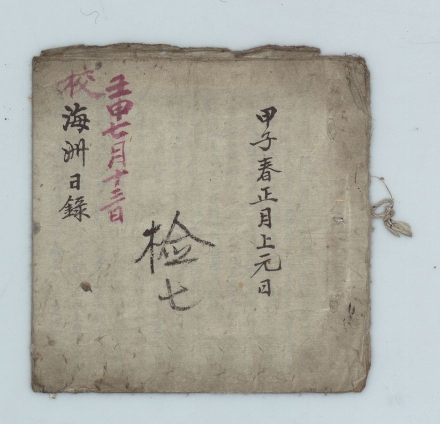 甲子春正月上元日
检七
壬申七月十三日
校
海洲日錄